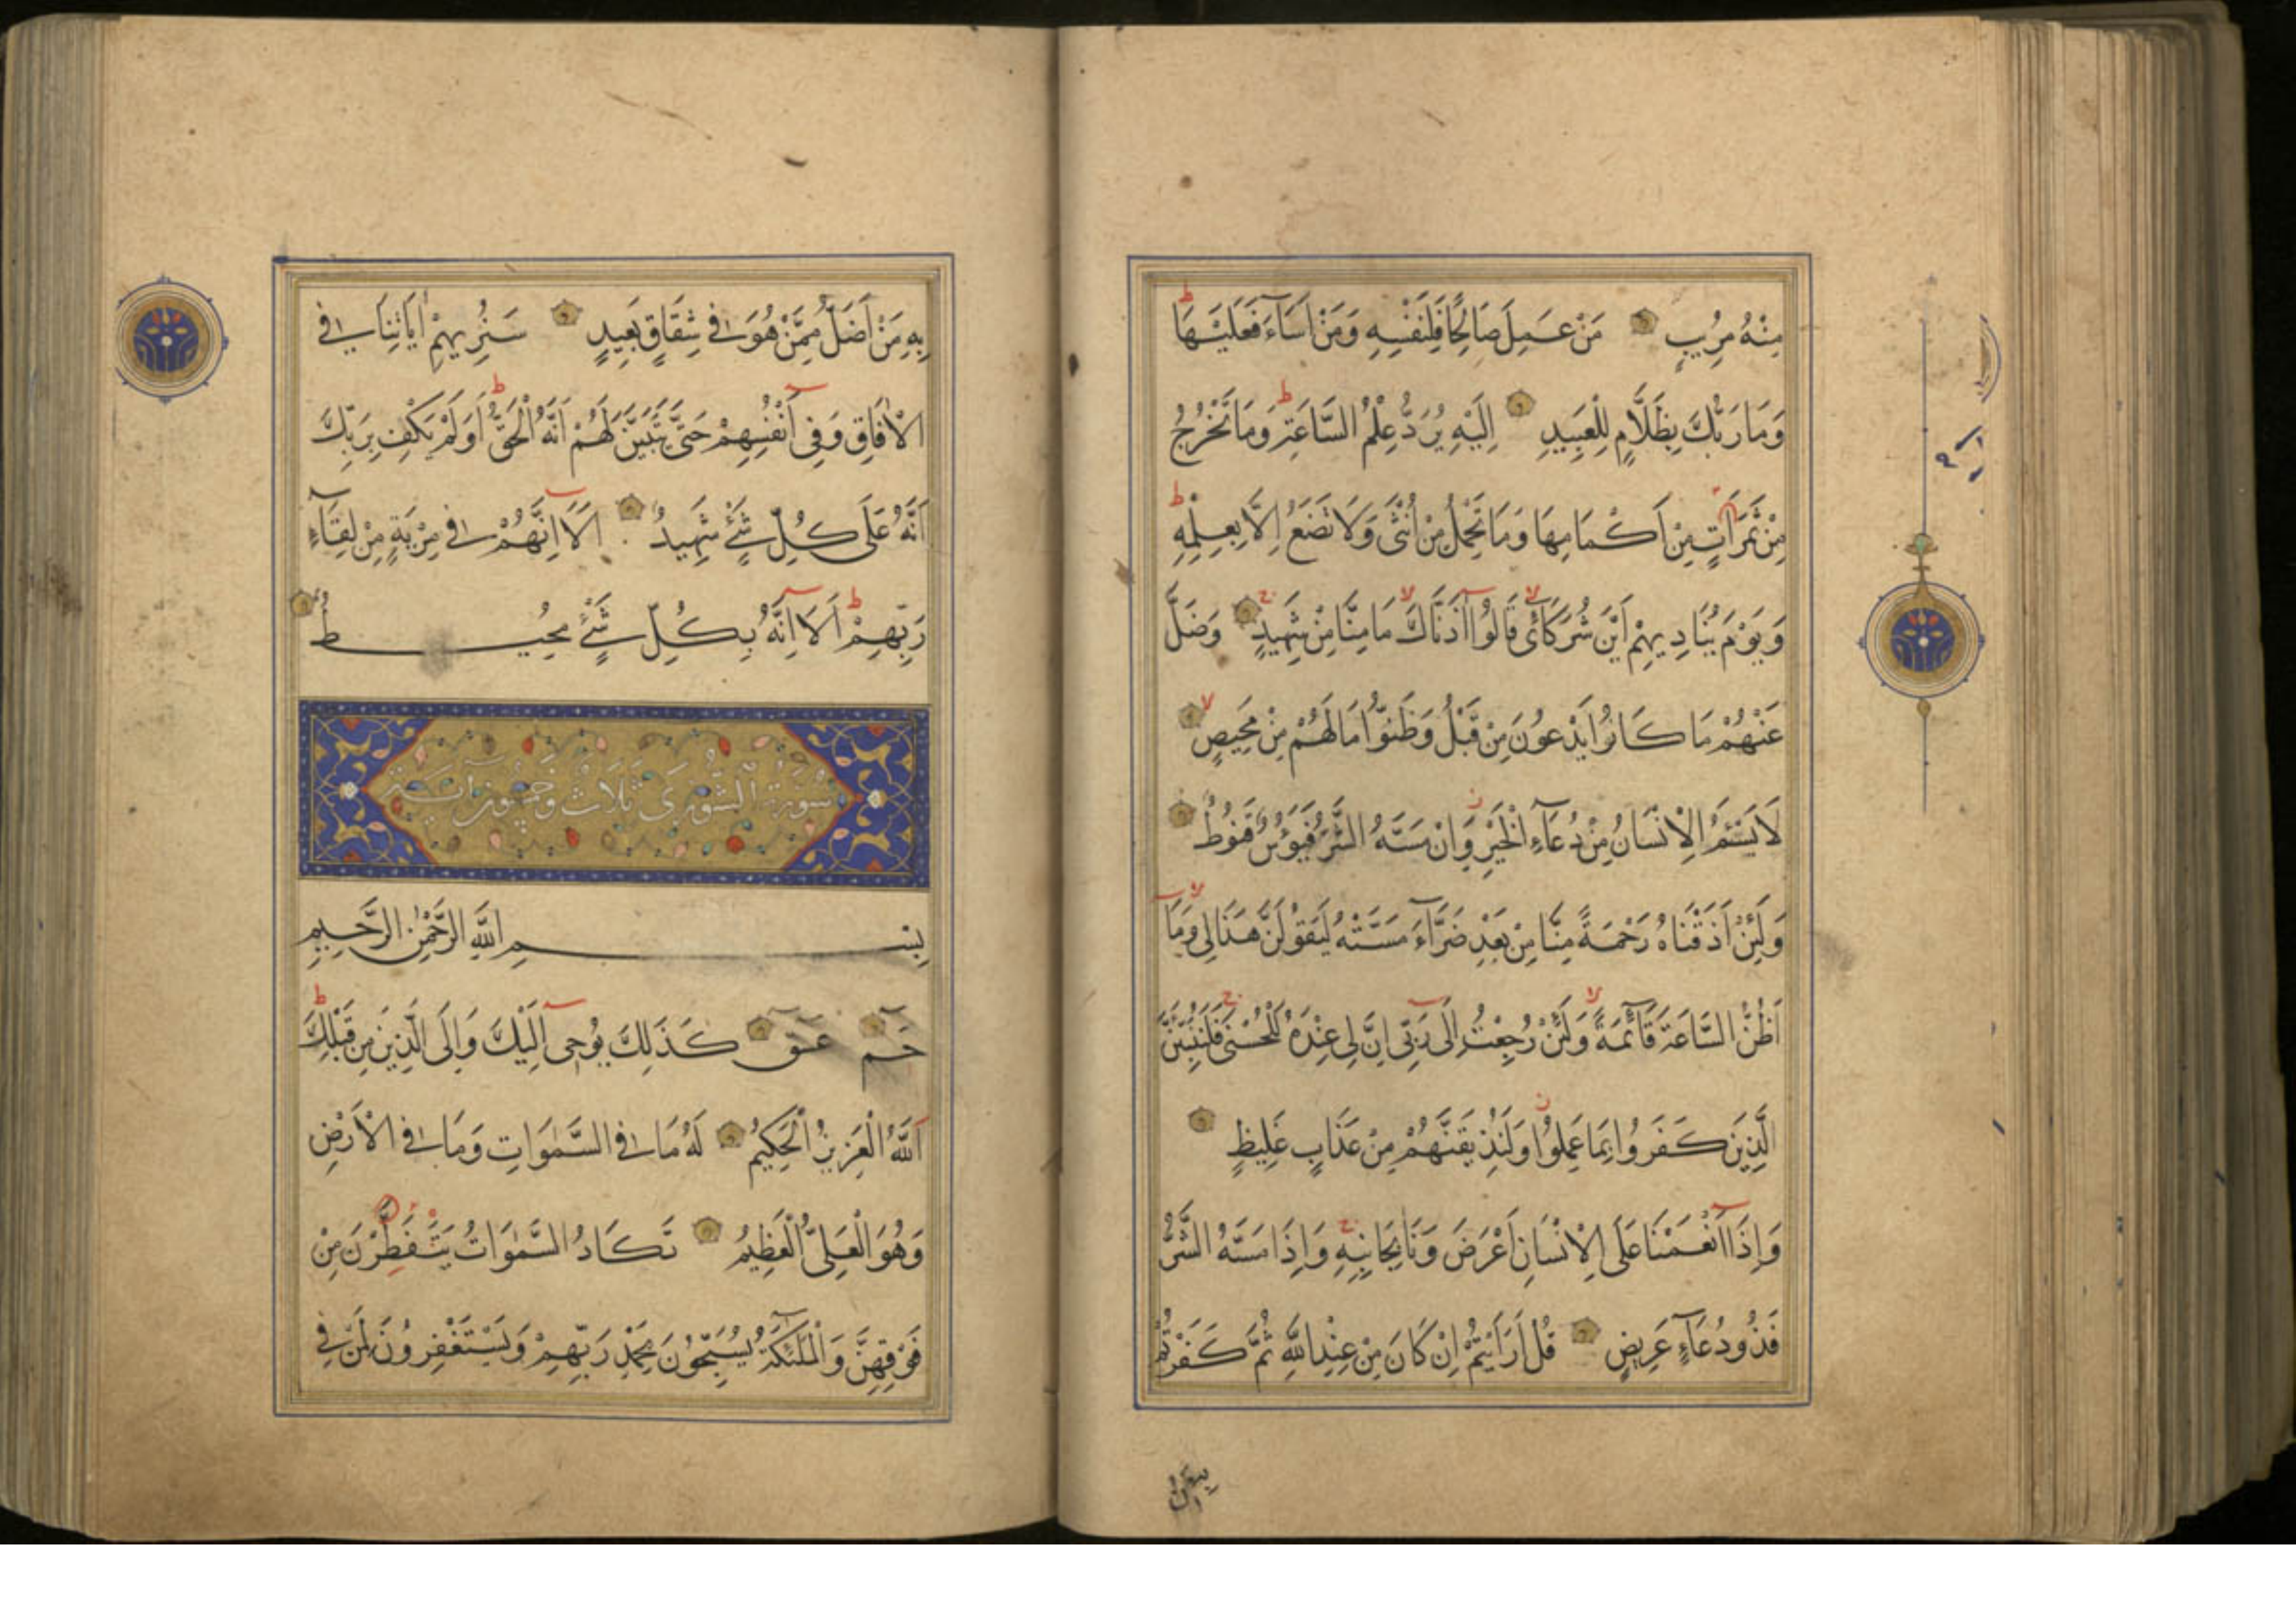 مِنْهُ مُرِيبٍ مَنْ عَمِلَ صَالِحًا فَلِنَفْسِهِ وَمَنْ اَسَآءَ فَعَلَيْهَا
وَمَا رَبُّكَ بِظَلَّامٍ لِلْعَبِيدِ اِلَيْهِ يُرَدُّ عِلْمُ السَّاعَةِ وَمَا تَخْرُجُ
مِنْ ثَمَرَاتٍ مِنْ اَكْمَامِهَا وَمَا تَحْمِلُ مِنْ اُنْثَى وَلَا تَضَعُ اِلَّا بِعِلْمِهِ
وَيَوْمَ يُنَادِيهِمْ اَيْنَ شُرَكَائِى قَالُوا آذَنَّاكَ مَا مِنَّا مِنْ شَهِيدٍ وَضَلَّ
عَنْهُمْ مَا كَانُوا يَدْعُونَ مِنْ قَبْلُ وَظَنُّوا مَا لَهُمْ مِنْ مَحِيصٍ
لَا يَسْئَمُ الْاِنْسَانُ مِنْ دُعَآءِ الْخَيْرِ وَاِنْ مَسَّهُ الشَّرُّ فَيَؤُسٌ قَنُوطٌ
وَلَئِنْ اَذَقْنَاهُ رَحْمَةً مِنَّا مِنْ بَعْدِ ضَرَّآءَ مَسَّتْهُ لَيَقُولَنَّ هَذَا لِى وَمَا
اَظُنُّ السَّاعَةَ قَآئِمَةً وَلَئِنْ رُجِعْتُ اِلَى رَبِّى اِنَّ لِى عِنْدَهُ لَلْحُسْنَى فَلَنُنَبِّئَنَّ
الَّذِينَ كَفَرُوا بِمَا عَمِلُوا وَلَنُذِيقَنَّهُمْ مِنْ عَذَابٍ غَلِيظٍ
وَاِذَا اَنْعَمْنَا عَلَى الْاِنْسَانِ اَعْرَضَ وَنَاَ بِجَانِبِهِ وَاِذَا مَسَّهُ الشَّرُّ
فَذُو دُعَآءٍ عَرِيضٍ قُلْ اَرَاَيْتُمْ اِنْ كَانَ مِنْ عِنْدِ اللّٰهِ ثُمَّ كَفَرْتُمْ
بِهِ مَنْ اَضَلُّ مِمَّنْ هُوَ فِى شِقَاقٍ بَعِيدٍ سَنُرِيهِمْ اٰيَاتِنَا فِى
الْاٰفَاقِ وَفِى اَنْفُسِهِمْ حَتَّى يَتَبَيَّنَ لَهُمْ اَنَّهُ الْحَقُّ اَوَلَمْ يَكْفِ بِرَبِّكَ
اَنَّهُ عَلَى كُلِّ شَىْءٍ شَهِيدٌ اَلَا اِنَّهُمْ فِى مِرْيَةٍ مِنْ لِقَآءِ
رَبِّهِمْ اَلَا اِنَّهُ بِكُلِّ شَىْءٍ مُحِيطٌ
سُورَةُ الشُّورَى ثَلَاثٌ وَخَمْسُونَ آيَةً
بِسْمِ اللّٰهِ الرَّحْمٰنِ الرَّحِيمِ
حٰم عسق كَذَلِكَ يُوحِى اِلَيْكَ وَاِلَى الَّذِينَ مِنْ قَبْلِكَ
اَللّٰهُ الْعَزِيزُ الْحَكِيمُ لَهُ مَا فِى السَّمٰوَاتِ وَمَا فِى الْاَرْضِ
وَهُوَ الْعَلِىُّ الْعَظِيمُ تَكَادُ السَّمٰوَاتُ يَتَفَطَّرْنَ مِنْ
فَوْقِهِنَّ وَالْمَلٰئِكَةُ يُسَبِّحُونَ بِحَمْدِ رَبِّهِمْ وَيَسْتَغْفِرُونَ لِمَنْ فِى